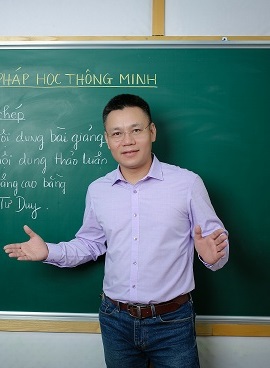 PHÁP HỌC THÔNG MINH
chép
dung bài giảng
dung thảo luận
cao bằng
Tư Duy.